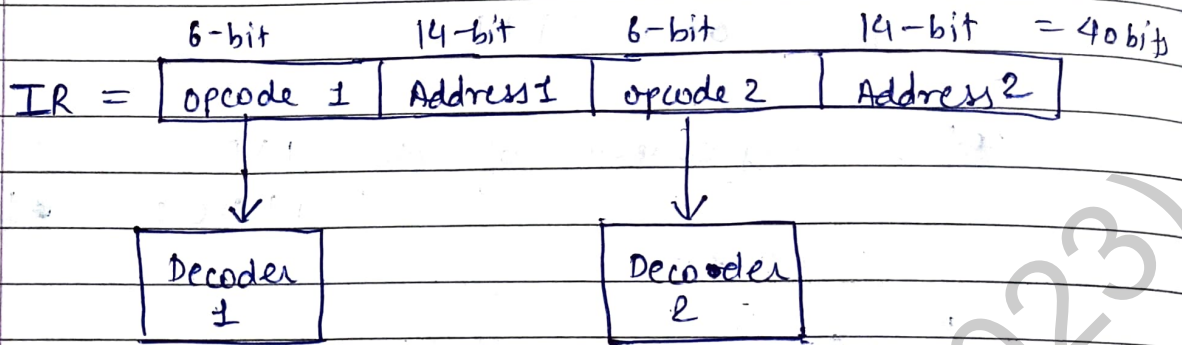 6-bit 14-bit 6-bit 14-bit = 40 bits
IR = opcode 1 Address1 opcode 2 Address 2
Decoder Decoder
1 2
023)